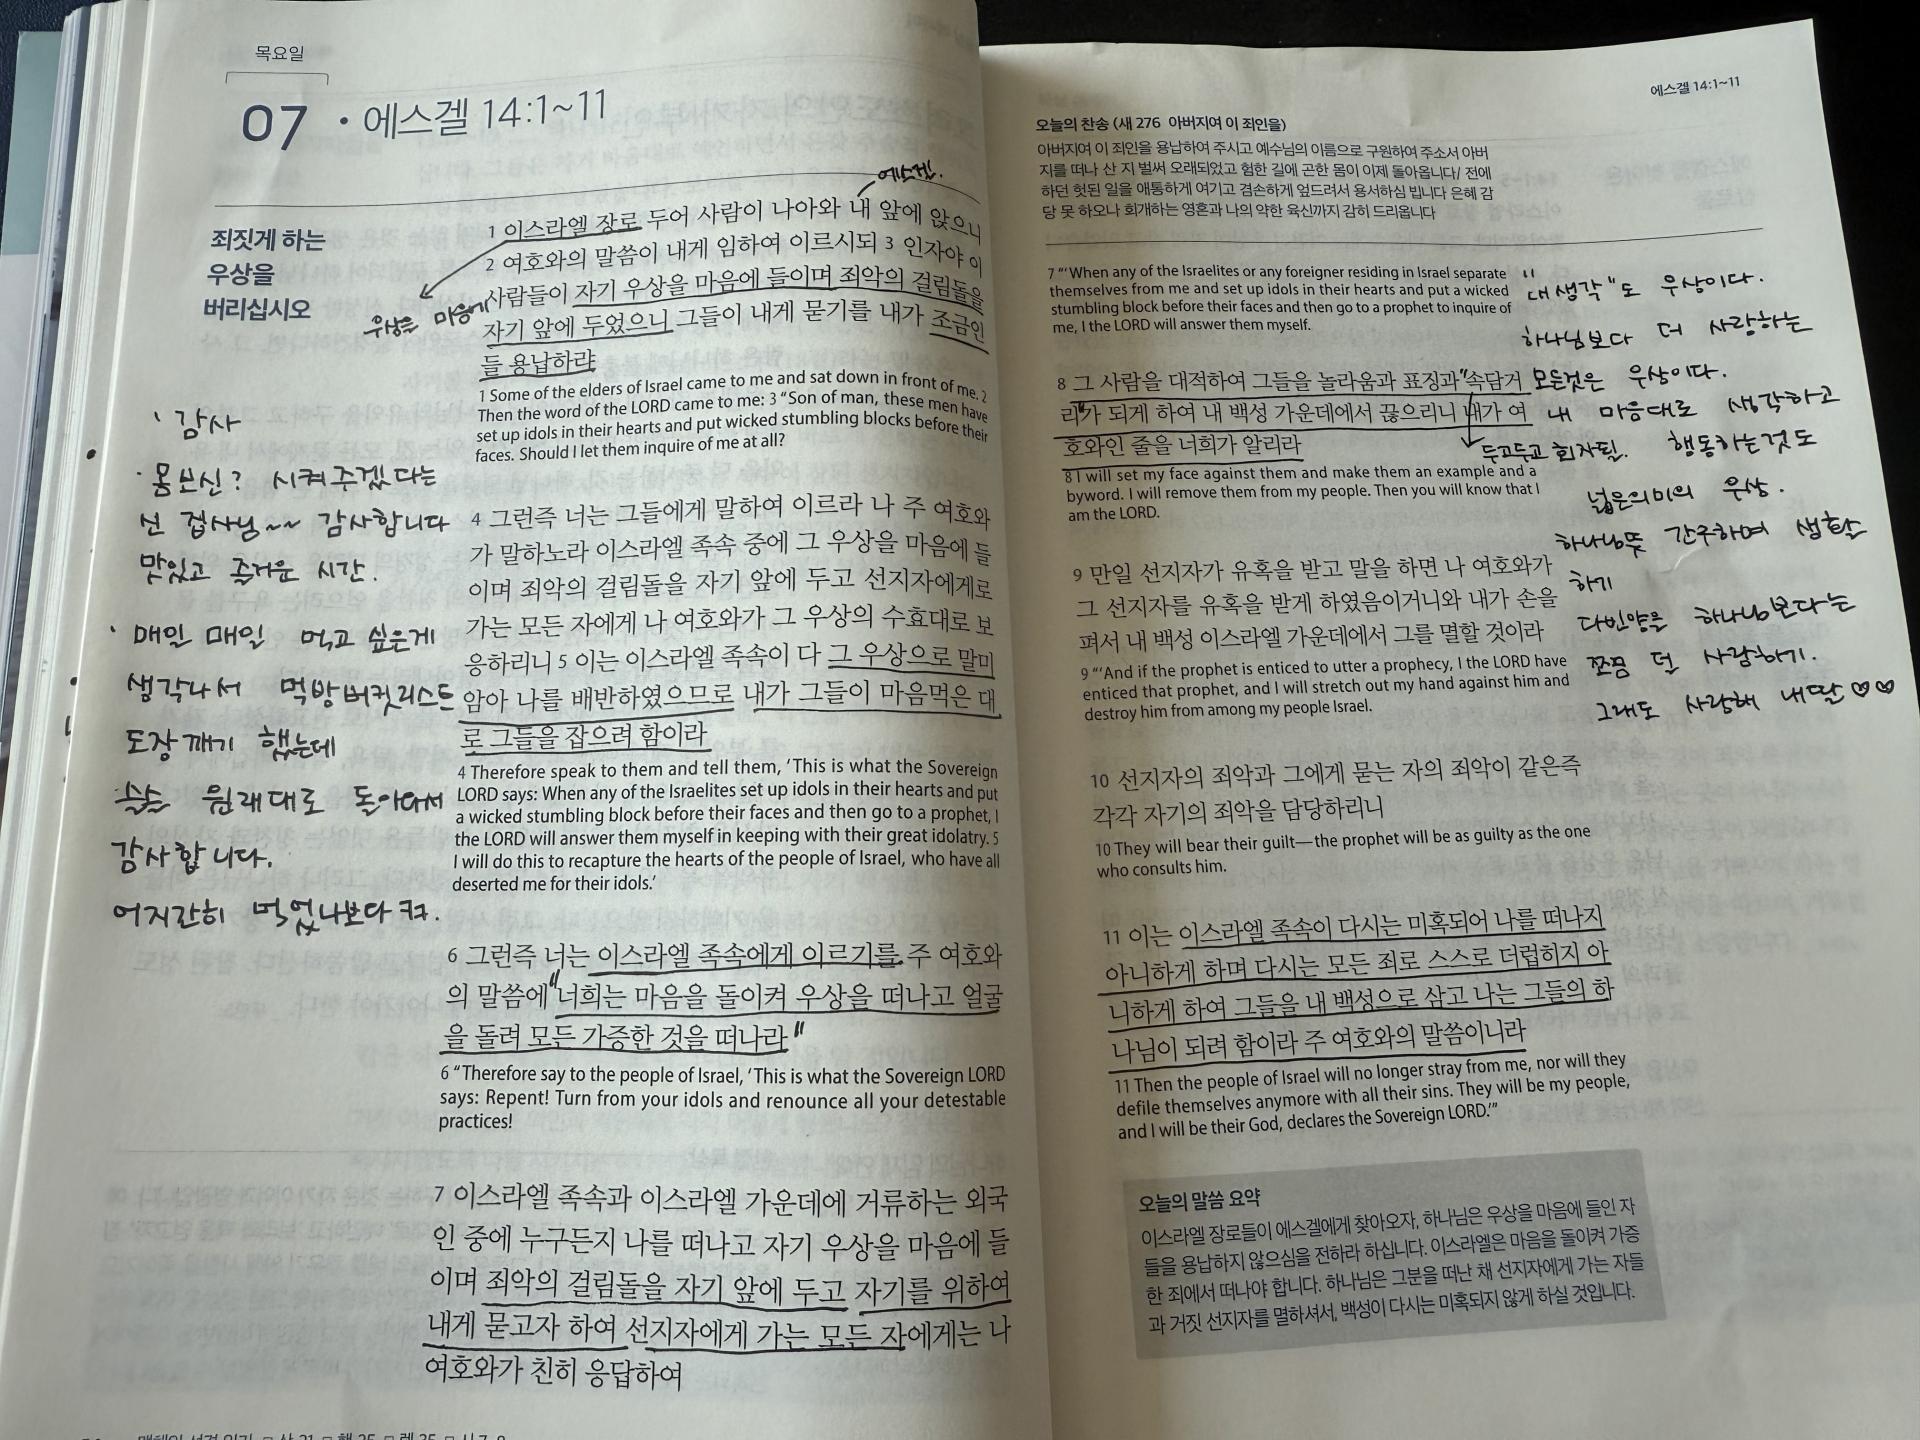 목요일
07 • 에스겔 14:1~11
죄짓게 하는
우상을
버리십시오
에스겔.
1 이스라엘 장로 두어 사람이 나아와 내 앞에 앉으니
2 여호와의 말씀이 내게 임하여 이르시되 3 인자야 이
사람들이 자기 우상을 마음에 들이며 죄악의 걸림돌을
자기 앞에 두었으니 그들이 내게 묻기를 내가 조금인
들 용납하랴
우상을 마음에
1 Some of the elders of Israel came to me and sat down in front of me. 2
Then the word of the LORD came to me: 3 “Son of man, these men have
set up idols in their hearts and put wicked stumbling blocks before their
faces. Should I let them inquire of me at all?
4 그런즉 너는 그들에게 말하여 이르라 나 주 여호와
가 말하노라 이스라엘 족속 중에 그 우상을 마음에 들
이며 죄악의 걸림돌을 자기 앞에 두고 선지자에게로
가는 모든 자에게 나 여호와가 그 우상의 수효대로 보
응하리니 5 이는 이스라엘 족속이 다 그 우상으로 말미
암아 나를 배반하였으므로 내가 그들이 마음먹은 대
로 그들을 잡으려 함이라
4 Therefore speak to them and tell them, ‘This is what the Sovereign
LORD says: When any of the Israelites set up idols in their hearts and put
a wicked stumbling block before their faces and then go to a prophet, I
the LORD will answer them myself in keeping with their great idolatry. 5
I will do this to recapture the hearts of the people of Israel, who have all
deserted me for their idols.’
6 그런즉 너는 이스라엘 족속에게 이르기를 주 여호와
의 말씀에 "너희는 마음을 돌이켜 우상을 떠나고 얼굴
을 돌려 모든 가증한 것을 떠나라"
6 “Therefore say to the people of Israel, ‘This is what the Sovereign LORD
says: Repent! Turn from your idols and renounce all your detestable
practices!
7 이스라엘 족속과 이스라엘 가운데에 거류하는 외국
인 중에 누구든지 나를 떠나고 자기 우상을 마음에 들
이며 죄악의 걸림돌을 자기 앞에 두고 자기를 위하여
내게 묻고자 하여 선지자에게 가는 모든 자에게는 나
여호와가 친히 응답하여
· 감사
· 몸보신? 시켜주겠다는
선 집사님~~ 감사합니다
맛있고 즐거운 시간.
· 매일 매일 먹고 싶은게
생각나서 먹방버킷리스트
도장깨기 했는데
슬슬 원래대로 돌아와서
감사합니다.
어지간히 먹었나보다 ㅋㅋ.
에스겔 14:1~11
오늘의 찬송 (새 276 아버지여 이 죄인을)
아버지여 이 죄인을 용납하여 주시고 예수님의 이름으로 구원하여 주소서 아버
지를 떠나 산 지 벌써 오래되었고 험한 길에 곤한 몸이 이제 돌아옵니다/ 전에
하던 헛된 일을 애통하게 여기고 겸손하게 엎드려서 용서하심 빕니다 은혜 감
당 못 하오나 회개하는 영혼과 나의 약한 육신까지 감히 드리옵니다
7 “‘When any of the Israelites or any foreigner residing in Israel separate
themselves from me and set up idols in their hearts and put a wicked
stumbling block before their faces and then go to a prophet to inquire of
me, I the LORD will answer them myself.
8 그 사람을 대적하여 그들을 놀라움과 표징과 "속담거
리"가 되게 하여 내 백성 가운데에서 끊으리니 내가 여
호와인 줄을 너희가 알리라
두고두고 회자됨.
8 I will set my face against them and make them an example and a
byword. I will remove them from my people. Then you will know that I
am the LORD.
9 만일 선지자가 유혹을 받고 말을 하면 나 여호와가
그 선지자를 유혹을 받게 하였음이거니와 내가 손을
펴서 내 백성 이스라엘 가운데에서 그를 멸할 것이라
9 “‘And if the prophet is enticed to utter a prophecy, I the LORD have
enticed that prophet, and I will stretch out my hand against him and
destroy him from among my people Israel.
10 선지자의 죄악과 그에게 묻는 자의 죄악이 같은즉
각각 자기의 죄악을 담당하리니
10 They will bear their guilt—the prophet will be as guilty as the one
who consults him.
11 이는 이스라엘 족속이 다시는 미혹되어 나를 떠나지
아니하게 하며 다시는 모든 죄로 스스로 더럽히지 아
니하게 하여 그들을 내 백성으로 삼고 나는 그들의 하
나님이 되려 함이라 주 여호와의 말씀이니라
11 Then the people of Israel will no longer stray from me, nor will they
defile themselves anymore with all their sins. They will be my people,
and I will be their God, declares the Sovereign LORD.’”
"내생각"도 우상이다.
하나님보다 더 사랑하는
모든것은 우상이다.
내 마음대로 생각하고
행동하는것도
넓은의미의 우상.
하나님뜻 간구하며 생활
하기
다빈양을 하나님보다는
쪼끔 덜 사랑하기.
그래도 사랑해 내딸♡♡
오늘의 말씀 요약
이스라엘 장로들이 에스겔에게 찾아오자, 하나님은 우상을 마음에 들인 자
들을 용납하지 않으심을 전하라 하십니다. 이스라엘은 마음을 돌이켜 가증
한 죄에서 떠나야 합니다. 하나님은 그분을 떠난 채 선지자에게 가는 자들
과 거짓 선지자를 멸하셔서, 백성이 다시는 미혹되지 않게 하실 것입니다.